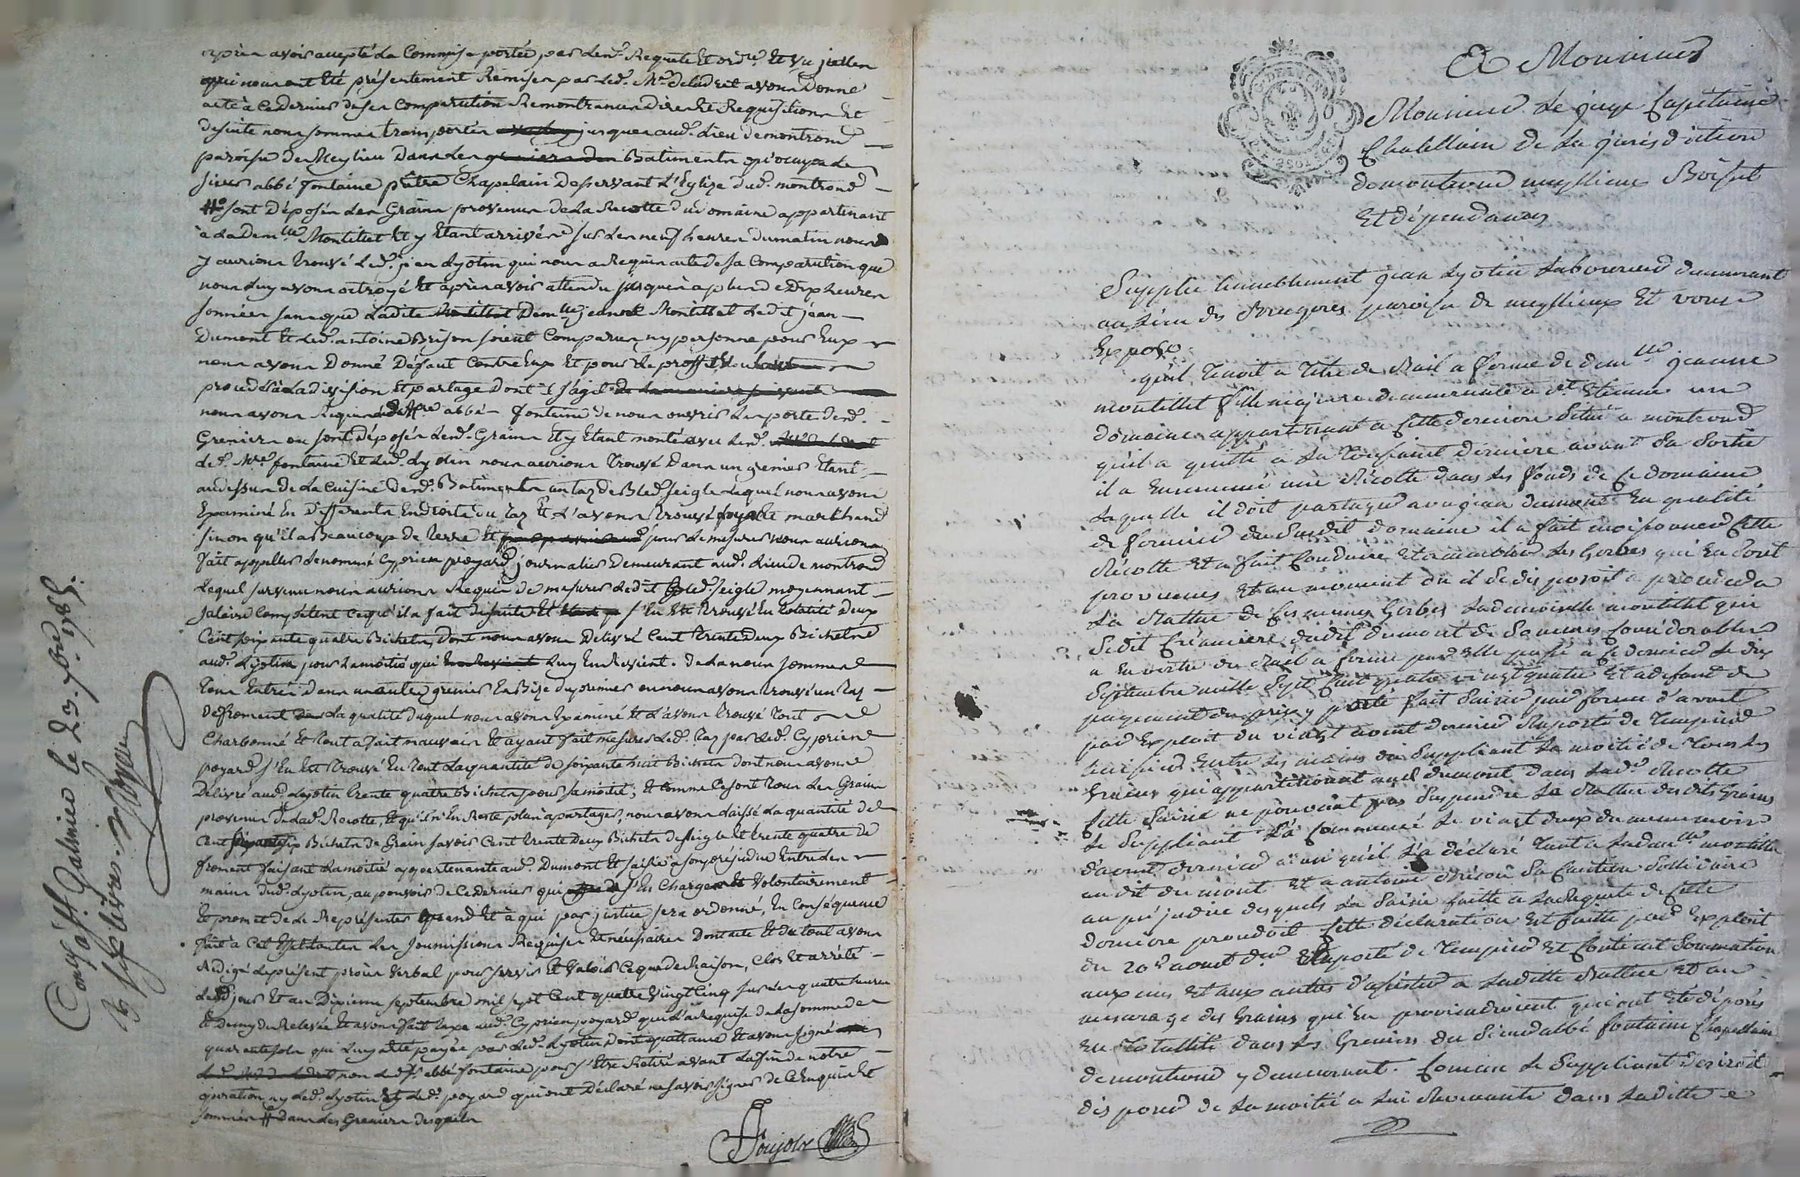 après avoir accepté la Commise portée par lesd. Requete Et ordce Et vu icelles
qui nous ont Eté présentement Remises par led. Me. deludet avons Donné
acte a Ce dernier de ses Comparution Remontrances Dires Et Requisitions Et
desuite nous sommes transportés jusques aud. Lieu de montrond
paroisse de Meylieu Dans les Batiments qu'occupe le
sieur abbé fontaine prêtre Chapelain Desservant L'Eglise dud. montrond
sont Déposés Les Grains provenus de La Recolte du Domaine appartenant
à lad. demlle Montellet Et y Etant arrivés sur Les neuf heures du matin nous
y aurions trouvé Led. jean Lyotin qui nous a Requis acte de sa Comparution que
nous Luy avons octroyé Et après avoir attendu jusques à plus de dix heures
sonnées sans que Ladite Demlle jeanne Montellet Ledit jean
Dumont Et Led. antoine Brison soient Comparus ny personne pour Eux
nous avons Donné Défaut Contre Eux Et pour Le proffit
procédé à La division Et partage dont il s'agit
nous avons Requis led. Mre abbé fontaine de nous ouvrir Les portes desd.
Greniers ou sont Déposés Lesd. Grains Et y Etant montés avec
Led. Mre fontaine Et Led. Lyotin nous aurions trouvé Dans un grenier Etant
au dessus de La Cuisine desd. Batiments un tas de Bled seigle Lequel nous avons
Examiné En Differents Endroits du tas Et L'avons trouvé Loyal Et marchand
sinon qu'il a Beaucoup de terre Et pour Le mesurer nous aurions
fait appeller Le nommé Cyprien poyard journalier Demeurant aud. Lieu de montrond
Lequel survenu nous aurions Requis de mesurer Ledit Bled seigle moyennant
salaire Compétent Ce qu'il a fait desuite Et s'En Est trouvé En totalité Deux
Cent soixante quatre Bichets, dont nous avons Délivré Cent trente deux Bichets
aud. Lyotin pour La moitié qui Luy En Revient. De La nous sommes
tous Entrés Dans un autre grenier En Bize du premier ou nous avons trouvé un tas
De froment La qualité duquel nous avons Examiné Et L'avons trouvé tout
Charbonné Et tout a fait mauvais Et ayant fait mesurer Led. tas par Led. Cyprien
poyard s'En Est trouvé En tout La quantité de soixante huit Bichets Dont nous avons
Délivré aud. Lyotin trente quatre Bichets pour sa moitié; Et Comme Ce sont tous Les Grains
provenus de Lad. Recolte, Et qu'il n'En Reste plus à partager, nous avons Laissé La quantité de
Cent soixante six Bichets de Grain savoir Cent trente Deux Bichets de seigle Et trente quatre de
froment faisant La moitié appartenante aud. Dumont Et saisie a son préjudice Entre Les
mains dud. Lyotin, au pouvoir de Ce dernier qui s'En Charge Volontairement
Et promet de Le Représenter quand Et à qui par justice sera ordonné, En Conséquence
fait à Cet Effet Les soumissions Requises Et nécessaires Dont acte Et du tout avons
Rédigé Le présent procès verbal pour servir Et Valoir Ce que de Raison, Clos Et arrêté
Lesd. jour Et an Dixième septembre mil sept Cent quatre Vingt Cinq sur Les quatre heures
Et Demy du Relevée Et avons fait taxe aud. Cyprien poyard qui L'a Requise de La somme de
quarante sols qui Luy a Eté payée par Led. Lyotin dont quittance Et avons signé
non Led. Sr abbé fontaine pour s'Etre Retiré avant La fin de notre
opération, ny Led. Lyotin Et Led. poyard qui ont Déclaré ne savoir signer de Ce Enquis Et
sommés # Dans Les Greniers desquels
Poujols
Conlé à St Galmier le 23. 7bre 1785.
Royer
GEN. DE LYON
A Monsieur
Monsieur Le juge Capitaine
Chatellain de La jurisdiction
de montrond meyllieux Boisset
Et dépendances
Supplie humblement jean Lyotin Laboureur demeurant
au Lieu des Brugeres paroisse de meyllieux Et vous
Expose
qu'il tenoit a titre de Bail a ferme de demlle jeanne
montellet fille majeure demeurante a St Etienne un
domaine appartenant a Cette derniere Situé a montrond
qu'il a quitté a La toussaint derniere avant Sa Sortie
il a Ensemencé une Récolte dans Les fonds de Ce domaine
Laquelle il doit partager avec jean dumont En qualité
de fermier dudit domaine il a fait moissonner Cette
Récolte Et a fait Conduire Et Les Gerbes qui En Sont
provenues Et au moment ou il Se disposoit a proceder a
La Battue de Ces memes Gerbes La demoiselle montellet qui
Se dit Créanciere dudit dumont de Sommes Considerables
a En vertu du Bail a ferme par Elle passé a Ce dernier Le dix
Septembre mille Sept Cent quatre vingt quatre Et a defaut de
payement du prix y porté fait Saisir
par Exploit du vingt aout dernier Raporté de tempier
huissier Entre Les mains du Suppliant La moitié de tous Les
Grains qui appartiennent audit dumont dans Lad. Récolte
Cette Saisie ne pouvant pas Suspendre La Battue desdits Grains
Le Suppliant L'a Commencé Le vingt deux du meme mois
d'aout dernier ainsi qu'il L'a déclaré tant a Ladlle montellet
audit dumont Et a antoine Brison Sa Caution Solidaire
au préjudice desquels La Saisie faitte a La Requete de Cette
derniere procedoit Cette déclaration Est faitte par Exploit
du 20e aout der Raporté de tempier Et Contenoit Sommation
aux uns Et aux autres d'assister a Laditte Battue Et au
mesurage des Grains qui En proviendroient qui ont Eté déposés
En totalité dans Les Greniers du Sieur abbé fontaine Chapellain
de montrond y demeurant. Comme Le Suppliant désireroit
disposer de La moitié a Lui Revenante dans Laditte